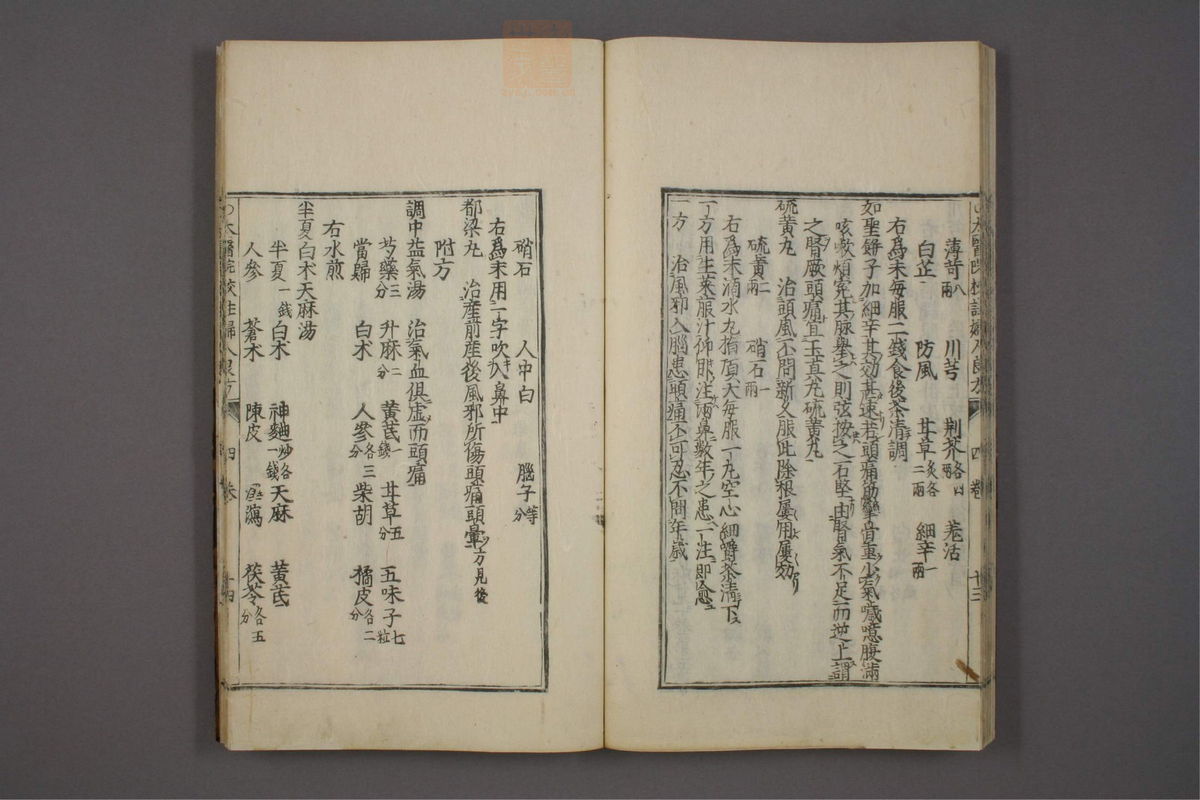 薄苛八兩 川芎 荆芥各四兩 羌活
白芷 防風 甘草炙各二兩 細辛一兩
右爲末每服二錢食後茶淸調
如聖餅子加細辛其効甚速若頭痛筋攣骨重少氣噦噫腹滿
咳嗽煩寃其脉舉之則弦按之石堅由腎氣不足而逆上謂
之腎厥頭痛宜玉真丸硫黄丸
硫黄丸 治頭風不問新久服此除根屢用屢効
硫黄二兩 硝石一兩
右爲末滴水丸指頂大每服一丸空心細嚼茶淸下
一方用生萊菔汁仰卧注兩鼻數年之患一注即愈
一方 治風邪入腦患頭痛不可忍不問年歲
硝石 人中白 腦子等分
右爲末用一字吹入鼻中
都梁丸 治產前產後風邪所傷頭痛頭暈方見後
附方
調中益氣湯 治氣血俱虛而頭痛
芍藥三分 升麻二分 黄芪一錢 甘草五分 五味子七粒
當歸 白术 人參各三分 柴胡 橘皮各二分
右水煎
半夏白术天麻湯
半夏一錢 白术 神麯炒各一錢 天麻 黄芪
人參 蒼术 陳皮 澤瀉 茯苓各五分
太醫院校註婦人良方 四卷 十三
太醫院校註婦人良方 四卷 十四